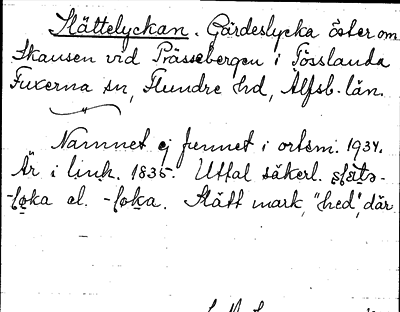 Slättelyckan. Gärdeslycka öster om
Skansen vid Prässebergen i Tösslanda
Fuxerna sn, Flundre hd, Älfsb. län.
Namnet ej funnet i ortsm. 1934.
Är i link. 1835. Uttal säkerl.
el. Slätt mark, "hed", där